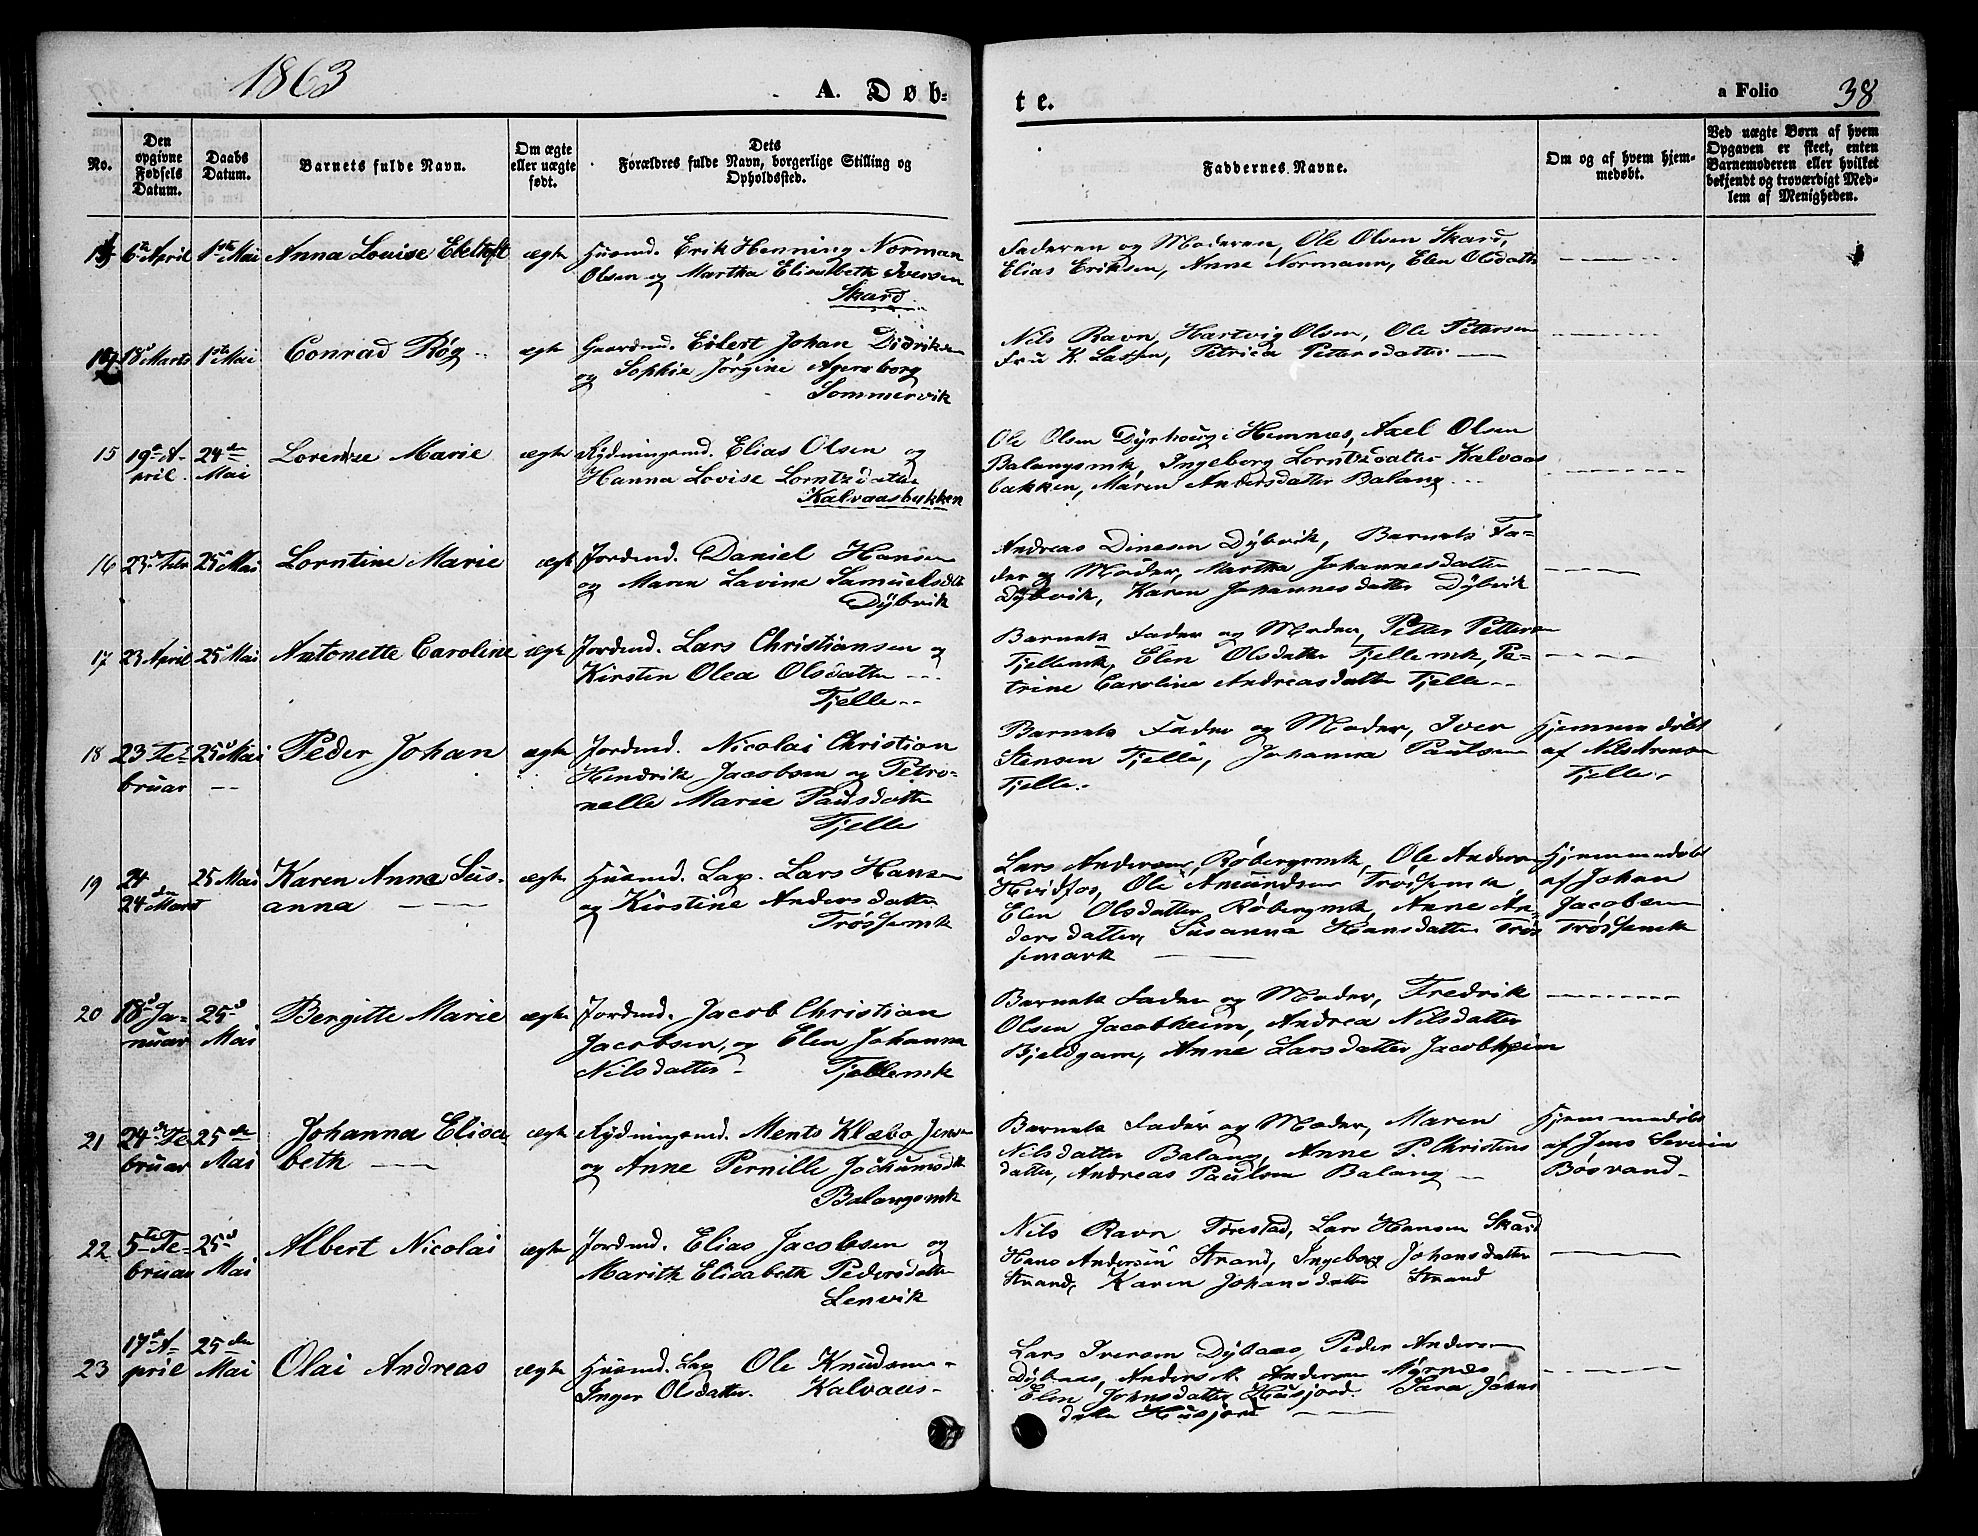 1863
A. Døb-
te.
a Folio 38
No.
Den opgivne Fødsels Datum.
Daabs Datum.
Barnets fulde Navn.
Om ægte eller uægte født.
Dets Forældres fulde Navn, borgerlige Stilling og Opholdssted.
Faddernes Navne.
Om og af hvem hjemmedøbt.
Ved uægte Børn af hvem Opgaven er skeet, enten Barnemoderen eller hvilket bekjendt og troværdigt Medlem af Menigheden.
6te April 1ste Mai Anna Louise Ekeltoft ægte Huusmd. Erik Henning Norman
Olsen og Martha Elisabeth Iversen
Skard
Faderen og Moderen, Ole Olsen Skard,
Elias Eriksen, Anne Normann, Elen Olsdatter
18d Marts 1ste Mai Conrad Røg ægte Gaardmd. Eilert Johan Didriksen
og Sophie Jørgine Agersborg
Sommervik
Nils Ravn, Hartvig Olsen, Ole Petersen
Fru K. Lassen, Petrica Petersdatter
15 19de April 24de Mai Lorentze Marie ægte Rydningsmd. Elias Olsen og
Hanna Lovise Lorntzdatter
Kalvaasbakken
Ole Olsen Dyrhoug i Hemnæs, Axel Olsen
Balangsmk, Ingeborg Lorntzdatter Kalvaas
bakken, Maren Andersdatter Balang
16 23de Febr 25 Mai Lorntine Marie ægte Jordmd. Daniel Hansen
og Maren Lavine Samuelsdtr
Dybvik
Andreas Dinesen Dybvik, Barnets Fa-
der og Moder, Martha Johannesdatter
Dybvik, Karen Johannesdatter Dybvik
17 23 April 25 Mai Antonette Caroline ægte Jordmd. Lars Christiansen og
Kirsten Olea Olsdatter
Fjelle
Barnets Fader og Moder, Petter Pettersen
Fjellemk, Elen Olsdatter Fjellemk, Pe-
trine Caroline Andreasdatter Fjelle
18 23 Februar 25d Mai Peder Johan ægte Jordmd. Nicolai Christian
Hendrik Jacobsen og Petro-
nelle Marie Paulsdatter
Fjelle
Barnets Fader og Moder, Iver
Stensen Fjelle, Johanna Paulsen
Fjelle.
Hjemmedøbt
af Nils Arensen
Fjelle
19 24 24de Marts 25 Mai Karen Anna Sus-
anna ægte Huusmd. Lap. Lars Hansen
og Kirstine Andersdatter
Trøsemk
Lars Andersen, Røbergsmk, Ole Andersen
Hvidfos, Ole Amundsen Trøsemk
Elen Olsdatter Røbergmk, Anne An-
dersdatter, Susanna Hansdatter Trøs
semark
Hjemmedøbt
af Johan
Jacobsen
Trøsemk
20 18d Januar 25d Mai Bergitte Marie ægte Jordmd. Jacob Christian
Jacobsen, og Elen Johanna
Nilsdatter Fjellemk
Barnets Fader og Moder, Fredrik
Olsen Jacobheim, Andrea Nilsdatter
Bjeldgam, Anne Larsdatter Jacobheim
21 24de Februar 25de Mai Johanna Elisa
beth ægte Rydningsmd. Ments Klæbo Jensen
og Anne Pernille Jochumsdtr
Balangsmk
Barnets Fader og Moder, Maren
Nilsdatter Balang, Anne P. Christens
datter, Andreas Paulsen Balang
Hjemmedøbt
af Jens Severin
Bøsvand
22 5te Februar 25d Mai Albert Nicolai ægte Jordmd. Elias Jacobsen og
Marith Elisabeth Pedersdatter
Lenvik
Nils Ravn Tørestad, Lars Hansen Skard
Hans Andersen Strand, Ingeborg Johansdatter
Strand, Karen Johansdatter Strand
23 17de April 25de Mai Olai Andreas ægte Huusmd. Lap Ole Knudsen
Inger Olsdatter. Kalvaas
Lars Iversen Dybaas, Peder Andersen
Dybaas, Anders M. Andersen Myrnæs
Elen Johnsdatter Husjord. Sara Johns
datter Husjord